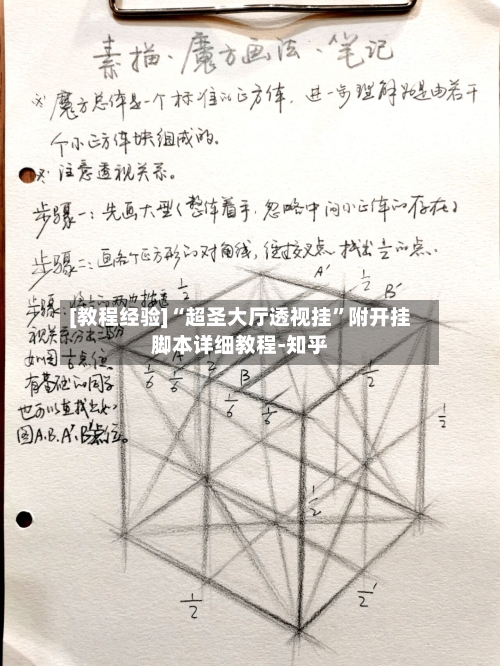 素描、魔方画法、笔记
※ 魔方总体是一个标准的正方体，进一步理解就是由若干
个小正方体块组成的。
※ 注意透视关系。
步骤一：先画大型（整体着手，忽略中间小正体的存在）
步骤二：画各个正方形的对角线，使交叉点找出 1/2 的点。
A' 1/2 B'
1/2
[教程经验]“超圣大厅透视挂”附开挂
脚本详细教程-知乎
步骤
视关系分出三部分
如图 1/6 点位
有基础的同学
也可以直接找出如
图A.B.A'.B'点位。
A
B
1/6 1/6 1/6 1/6
1/2
1/2
1/2
1/2
1/2'